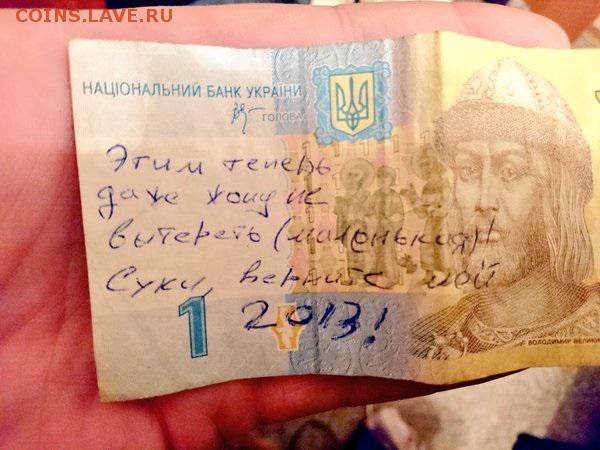 COINS.LAVE.RU
НАЦІОНАЛЬНИЙ БАНК УКРАЇНИ
ГОЛОВА
Этим теперь
даже жопу не
вытереть (маленькая)!
Суки, верните мой
2013!
1
ВОЛОДИМИР ВЕЛИКИ